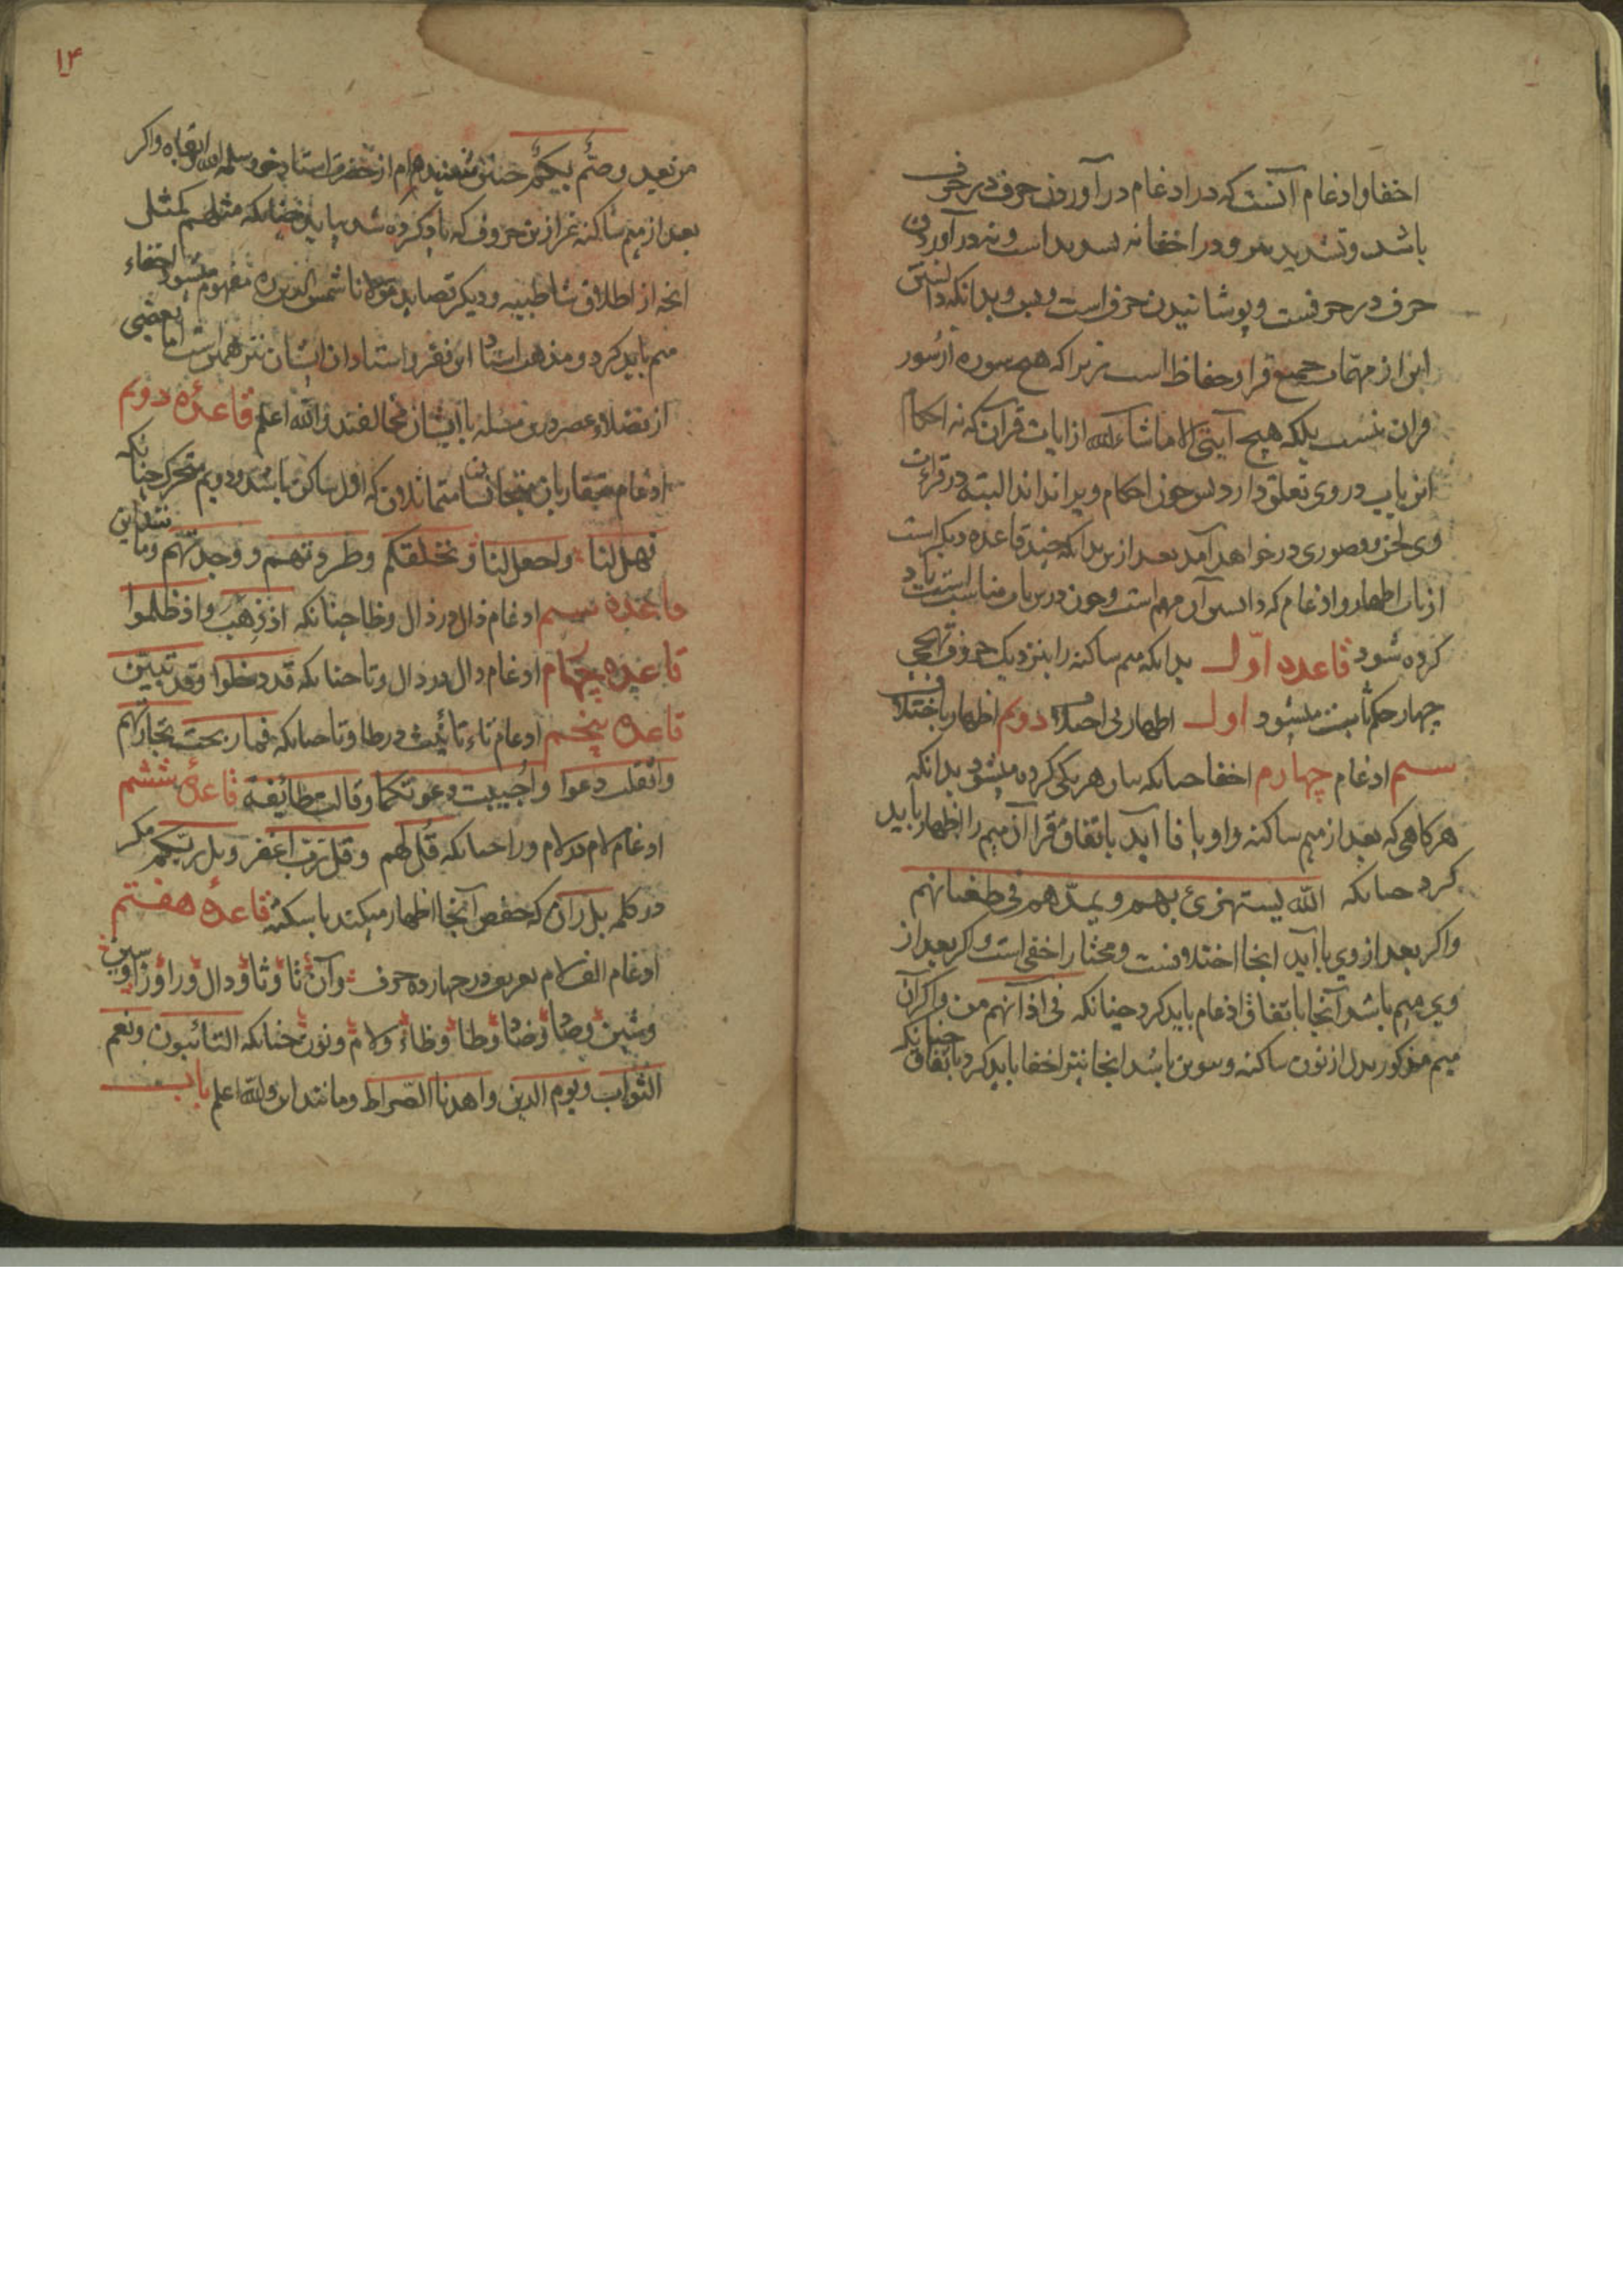 اخفا و ادغام آنست که در ادغام در آوردن حرف در حرف
باشد و تشدید و در اخفا نه تشدید است و نه در آوردن
حرف در حرفست و پوشانیدن حرف است و بس و بدانکه دانستن
این از مهمات جمیع قرا و حفاظ است زیرا که هیچ سوره از سور
قران نیست بلکه هیچ آیتی الا ماشاءالله از ایات قرآن که نه احکام
این باب در وی تعلق دارد پس چون احکام ویرا نداند البته در قراءت
وی لحن و قصوری در خواهد آمد بعد ازین بدانکه چند قاعده دیگر است
از باب اظهار و ادغام که دانستن آن مهم است و چون درین باب مناسبست یاد
کرده شود قاعده اوّل بدانکه میم ساکنه را بنزدیک حروف تهجی
چهار حکم ثابت میشود اول اظهار بی اختلاف دویم اظهار باختلاف
سیم ادغام چهارم اخفا چنانکه بیان هر یکی کرده میشود بدانکه
هرکاهی که بعد از میم ساکنه واو یا فا آید باتفاق قرا آن میم را اظهار باید
کرد چنانکه الله یستهزئ بهم ویمدّهم فی طغیانهم
واکر بعد از وی با آید انجا اختلافست و مختار اخفی است واکر بعد از
وی میم باشد آنجا باتفاق ادغام باید کرد چنانکه فی اذانهم من واکر آن
میم مذکور بدل از نون ساکنه و تنوین باشد انجا نیز اخفا باید کرد باتفاق چنانکه
۱۴
من بعد و صمٌّ بکمٌ چنین شنیده‌ام از حضرت استاد خود سلمه الله و ابقاه واکر
بعد از میم ساکنه غیر ازین حروف که یاد کرده شد بیاید چنانکه مثلهم کمثل
انچه از اطلاق شاطبیه و دیکر قصاید مولانا شمس الدین ره مفهوم میشود اخفاء
میم باید کرد و مذهب استاد این فقیر و استادان ایشان نیز همین است اما بعضی
از فضلاء عصر درین مسله با ایشان مخالفند والله اعلم قاعدهٔ دویم
ادغام متقاربان متجانسان متماثلان که اول ساکن باشد و دویم متحرک چنانکه
فهل لنا واجعل لنا و نخلقکم وطردتهم ووجدتهم و مانند این
قاعده سیم ادغام ذال در ذال و ظا چنانکه اذ ذهب و اذ ظلموا
قاعده چهارم ادغام دال در دال و تا چنانکه قد دخلوا وقد تبین
قاعده پنجم ادغام تاء تأنیث در طا و تا چنانکه فما ربحت تجارتهم
واثقلت دعوا و اجیبت دعوتکما وقالت طائفة قاعدهٔ ششم
ادغام لام در لام و را چنانکه قل لهم وقل رب اغفر وبل ربکم مکر
در کلمه بل ران که حفص آنجا اظهار میکند با سکته قاعدهٔ هفتم
ادغام الف لام تعریف در چهارده حرف و آن تا و ثا و دال و را و زا و سین
و شین و صاد و ضاد و طا و ظاء و لام و نون چنانکه التائبون ونعم
الثواب ویوم الدین واهدنا الصراط و مانند این والله اعلم باب